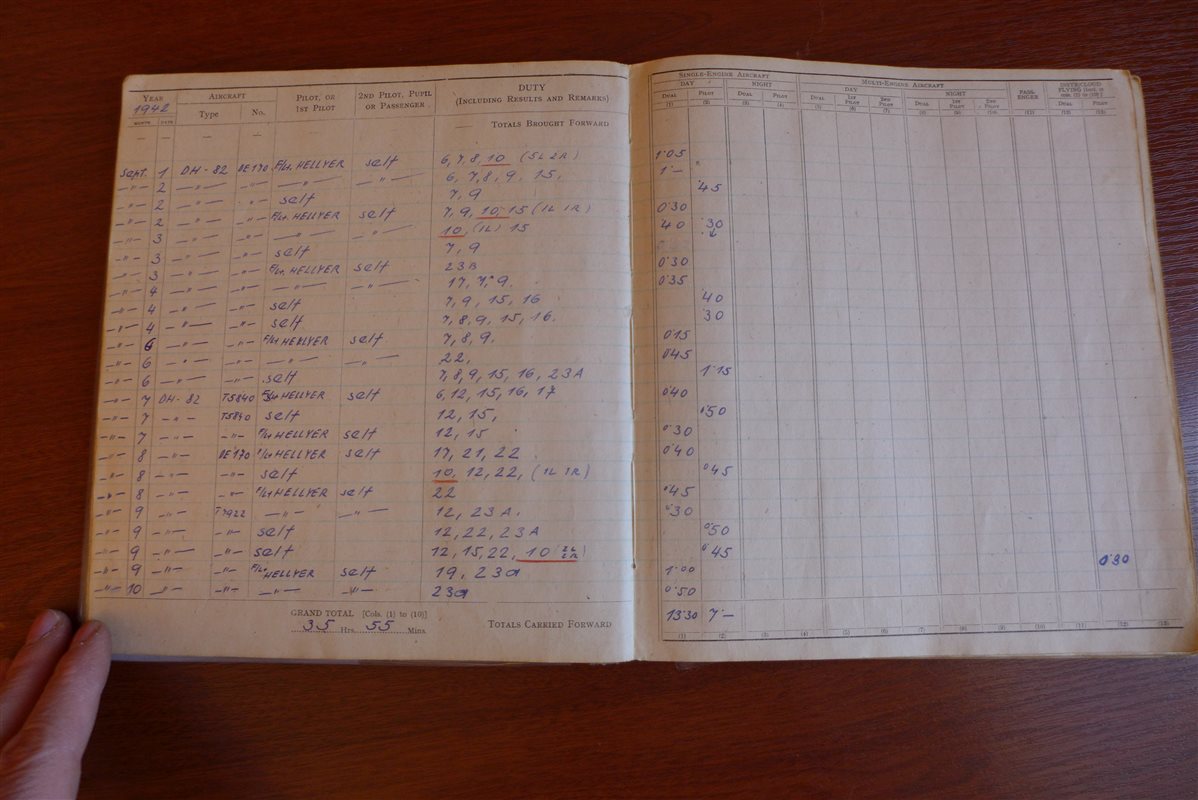 YEAR AIRCRAFT PILOT, OR 1ST PILOT 2ND PILOT, PUPIL OR PASSENGER DUTY (INCLUDING RESULTS AND REMARKS) SINGLE-ENGINE AIRCRAFT MULTI-ENGINE AIRCRAFT
1942 DAY NIGHT DAY NIGHT PASSENGER
MONTH DATE Type No. DUAL PILOT DUAL PILOT DUAL 1ST PILOT 2ND PILOT DUAL 1ST PILOT 2ND PILOT DUAL PILOT
(1) (2) (3) (4) (5) (6) (7) (8) (9) (10) (11) (12) (13)
— — — — — TOTALS BROUGHT FORWARD
Sept. 1 DH-82 DE170 F/Lt. HELLYER self 6, 7, 8, 10 (5L 2R) 1·05
-"- 2 -"- -"- -"- -"- 6, 7, 8, 9, 15, 1·-
-"- 2 -"- -"- self 7, 9 ·45
-"- 2 -"- -"- F/Lt. HELLYER self 7, 9, 10, 15 (1L 1R) 0·30
-"- 3 -"- -"- -"- -"- 10, (1L) 15 ·40 ·30
-"- 3 -"- -"- self 7, 9
-"- 3 -"- -"- F/Lt. HELLYER self 23B 0·30
-"- 4 -"- -"- -"- -"- 17, 7, 9. 0·35
-"- 4 -"- -"- self 7, 9, 15, 16 ·40
-"- 4 -"- -"- self 7, 8, 9, 15, 16. ·30
-"- 6 -"- -"- F/Lt HELLYER self 7, 8, 9, 0·15
-"- 6 -"- -"- -"- -"- 22, 0·45
-"- 6 -"- -"- self 7, 8, 9, 15, 16, 23A 1·15
-"- 7 DH-82 T5840 F/Lt HELLYER self 6, 12, 15, 16, 17 0·40
-"- 7 -"- T5840 self 12, 15, 0·50
-"- 7 -"- -"- F/Lt HELLYER self 12, 15 0·30
-"- 8 -"- DE170 F/Lt HELLYER self 17, 21, 22 0·40
-"- 8 -"- -"- self 10, 12, 22, (1L 1R) 0·45
-"- 8 -"- -"- F/Lt HELLYER self 22 0·45
-"- 9 -"- T7922 -"- -"- 12, 23A. 0·30
-"- 9 -"- -"- self 12, 22, 23A 0·50
-"- 9 -"- -"- self 12, 15, 22, 10 (2L 2R) 0·45
-"- 9 -"- -"- F/Lt HELLYER self 19, 23a 1·00 0·30
-"- 10 -"- -"- -"- -"- 23a 0·50
GRAND TOTAL [Cols. (1) to (10)]
35 Hrs. 55 Mins. TOTALS CARRIED FORWARD 13·30 7·-
(1) (2) (3) (4) (5) (6) (7) (8) (9) (10) (11) (12) (13)